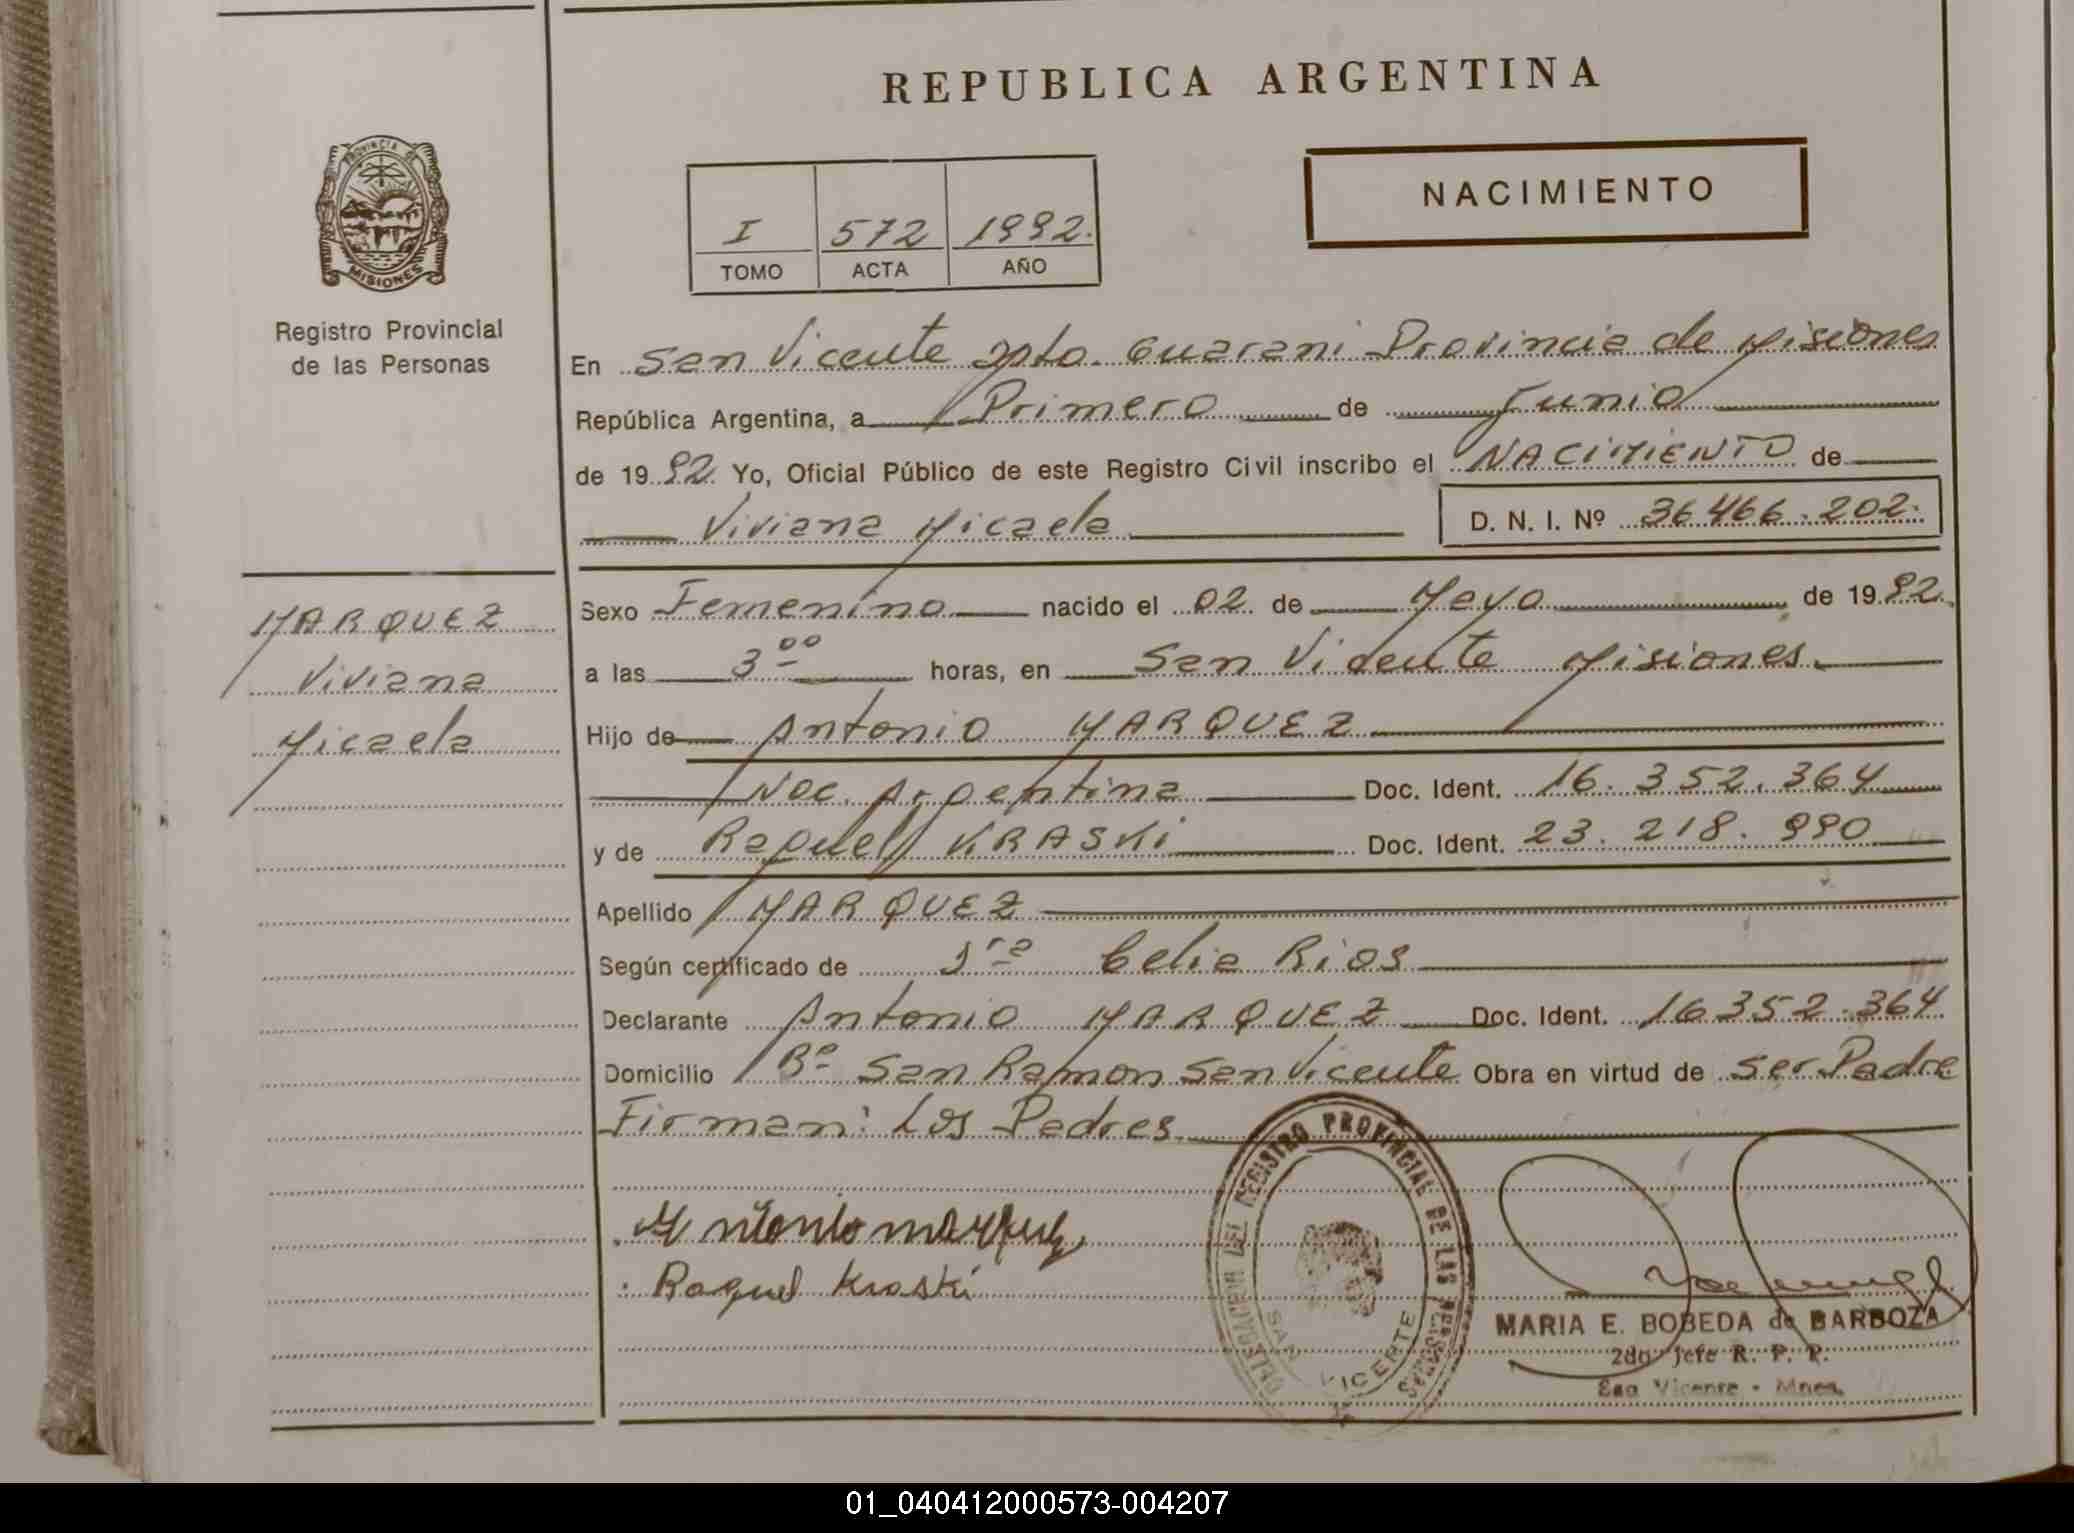 REPUBLICA ARGENTINA
PROVINCIA DE
MISIONES
Registro Provincial
de las Personas
NACIMIENTO
I 572 1992.
TOMO ACTA AÑO
En San Vicente Dpto. Guarani Provincia de Misiones
República Argentina, a Primero de Junio
de 1992. Yo, Oficial Público de este Registro Civil inscribo el NACIMIENTO de
Viviana Micaela D. N. I. Nº 36.466.202.
MARQUEZ
Viviana
Micaela
Sexo Femenino nacido el 02 de Mayo de 1992.
a las 3 00 horas, en San Vicente Misiones.
Hijo de Antonio MARQUEZ
Nac. Argentina Doc. Ident. 16.352.364
y de Raquel KRASKi Doc. Ident. 23.218.990
Apellido MARQUEZ
Según certificado de Celia Rios
Declarante Antonio MARQUEZ Doc. Ident. 16352.364
Domicilio Bº San Ramon San Vicente Obra en virtud de ser Padre
Firman: Los Padres
Antonio marquez
Raquel Kraski
DELEGACION DEL REGISTRO PROVINCIAL DE LAS PERSONAS
SAN VICENTE
MARIA E. BOBEDA de BARBOZA
2do Jefe R. P. P.
San Vicente - Mnes.
01_040412000573-004207